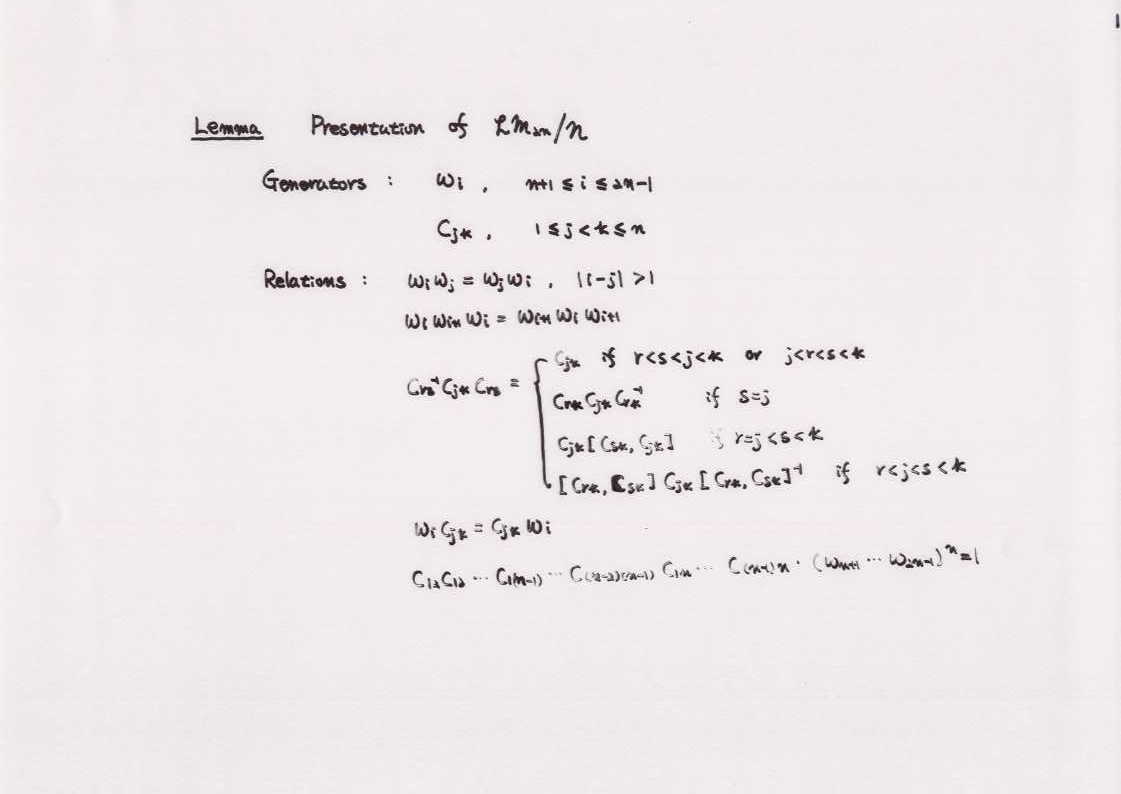 1
Lemma Presentation of LM₂ₙ/N
Generators : ωᵢ , n+1 ≤ i ≤ 2n-1
Cⱼₖ , 1 ≤ j < k ≤ n
Relations : ωᵢ ωⱼ = ωⱼ ωᵢ , |i-j| > 1
ωᵢ ωᵢ₊₁ ωᵢ = ωᵢ₊₁ ωᵢ ωᵢ₊₁
Cᵣₛ⁻¹ Cⱼₖ Cᵣₛ = { Cⱼₖ if r<s<j<k or j<r<s<k
Cᵣₖ Cⱼₖ Cᵣₖ⁻¹ if s=j
Cⱼₖ [Cₛₖ, Cⱼₖ] if r=j<s<k
[Cᵣₖ, Cₛₖ] Cⱼₖ [Cᵣₖ, Cₛₖ]⁻¹ if r<j<s<k
ωᵢ Cⱼₖ = Cⱼₖ ωᵢ
C₁₂ ⋯ C₁₍ₙ₋₁₎ ⋯ C₍ₙ₋₂₎₍ₙ₋₁₎ C₁ₙ ⋯ C₍ₙ₋₁₎ₙ · (ωₙ₊₁ ⋯ ω₂ₙ₋₁)ⁿ = 1